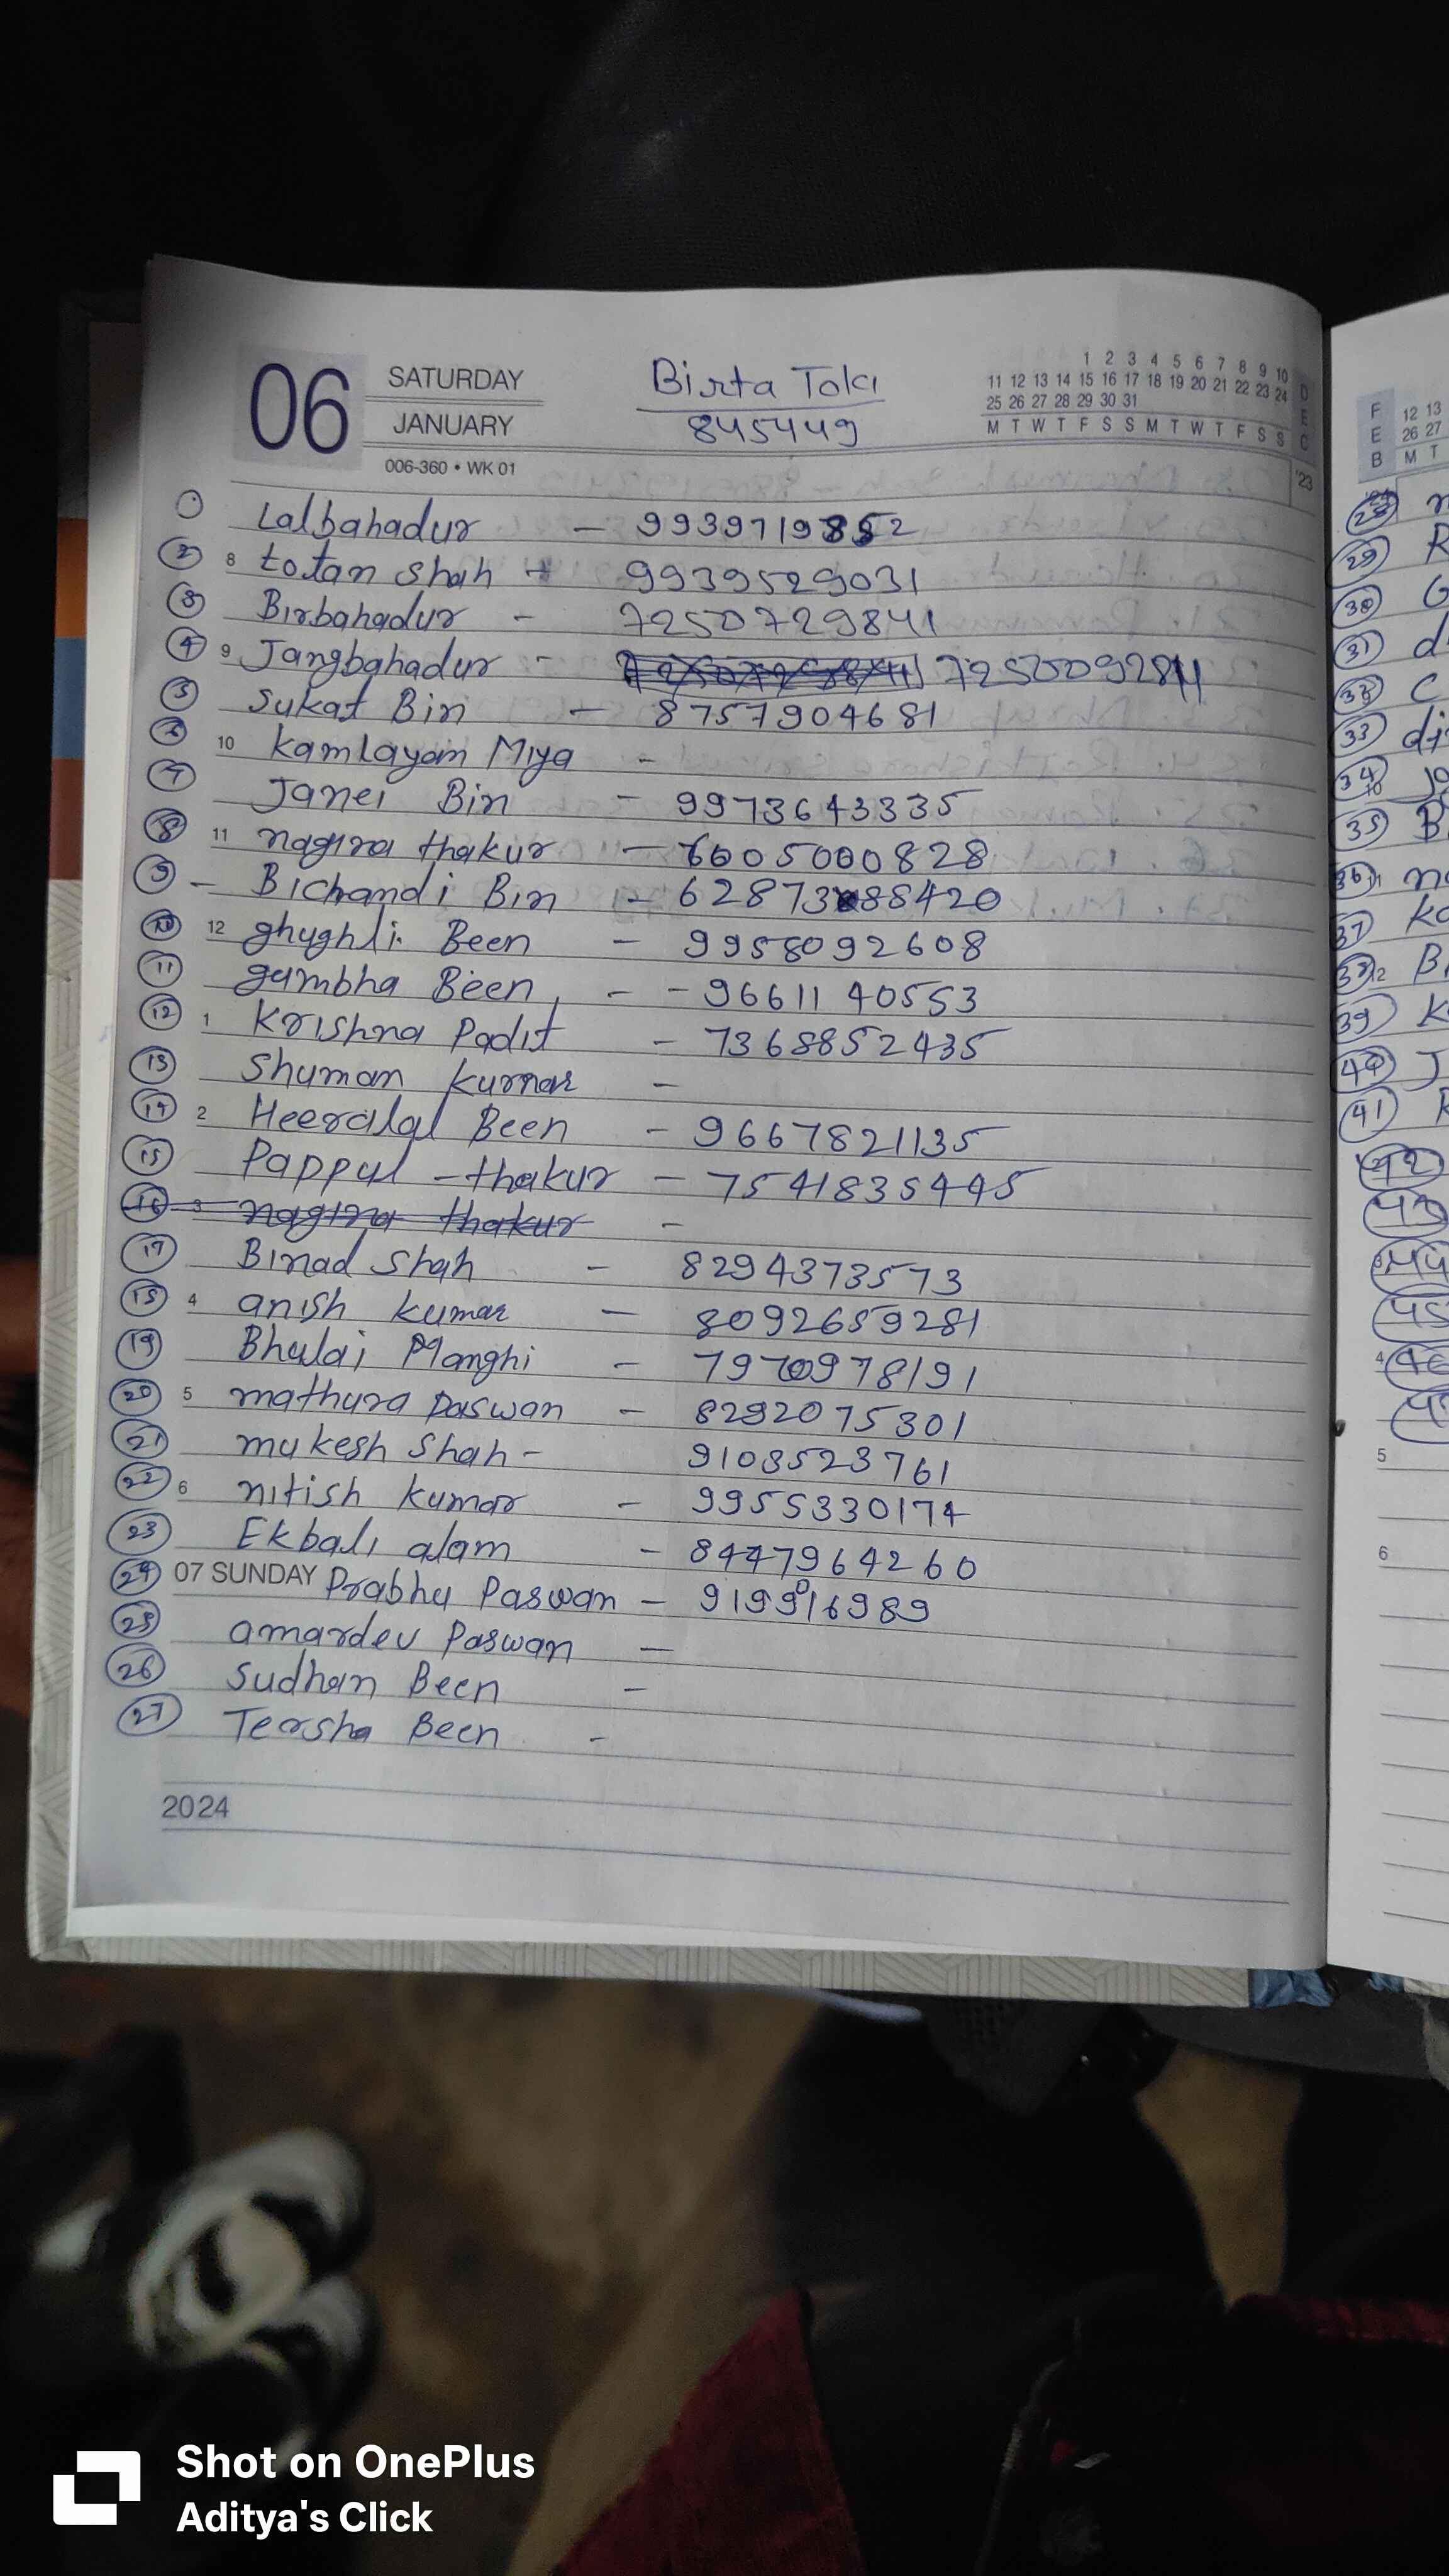 06
SATURDAY
JANUARY
006-360 • WK 01
Birta Tola
845449
1 2 3 4 5 6 7 8 9 10
11 12 13 14 15 16 17 18 19 20 21 22 23 24
25 26 27 28 29 30 31
M T W T F S S M T W T F S S
DEC '23
Lalbahadur - 9939719852
2 8 totan shah - 9939529031
3 Birbahadur - 7250729841
4 9 Jangbahadur - 7250729841 7250509284
5 Sukat Bin - 8757904681
6 10 Kamlayam Miya -
7 Janei Bin - 9973643335
8 11 nagina thakur - 6005000828
9 - Bichandi Bin - 6287388420
10 12 ghughli Been - 9958092608
11 gambha Been - - 9661140553
12 1 Krishna Padit - 7368852435
13 Shuman Kumar -
14 2 Heeralal Been - 9667821135
15 Pappul - thakur - 7541835445
16 3 nagina thakur -
17 Binad Shah - 8294373573
18 4 anish kumar - 8092659281
19 Bhulai Manghi - 7970978191
20 5 mathura Paswan - 8292075301
21 mukesh Shah - 9108523761
22 6 nitish kumar - 9955330174
23 Ekbali alam - 8447964260
24 07 SUNDAY Prabhu Paswan - 9199016989
25 amardev Paswan -
26 Sudhan Been -
27 Tersha Been -
2024
FEB
12 13
26 27
M T
28
29 R
30 G
31
32 C
33 di
34
35 B
36
37 Ka
38 12 B
39 K
40 J
41
42
43
44
45
46
5
6
Shot on OnePlus
Aditya's Click